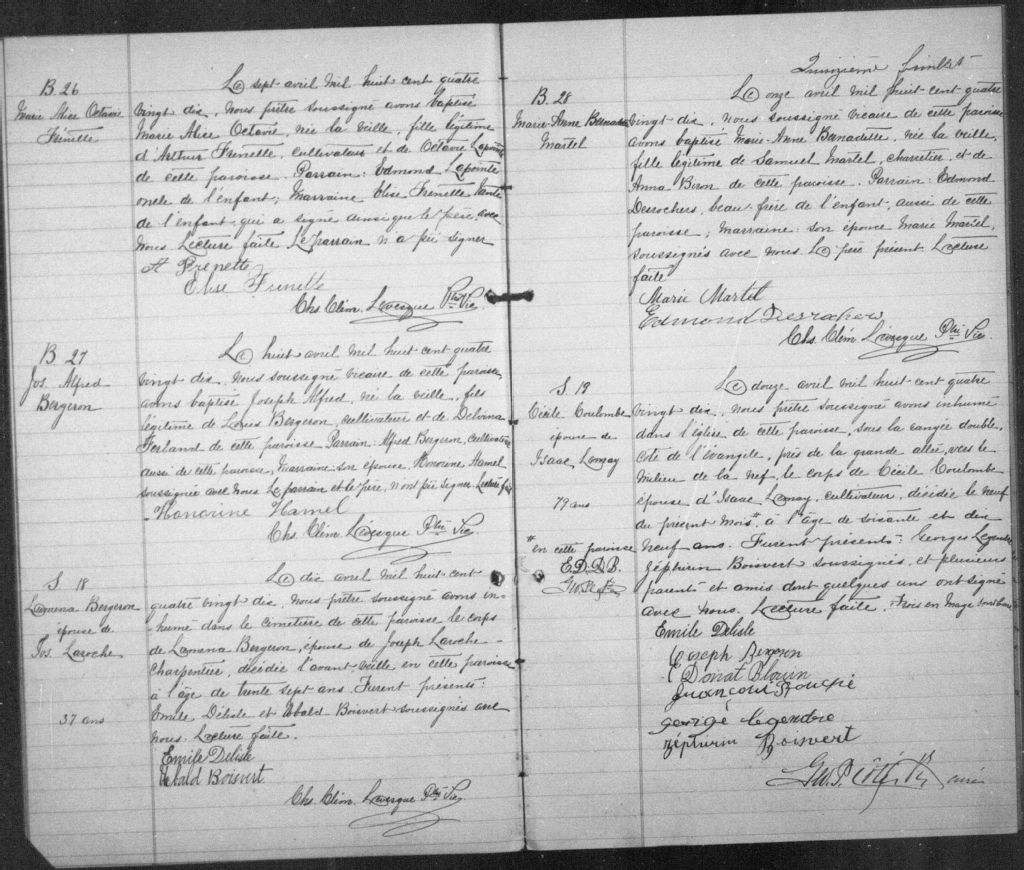 B 26
Marie Alice Octavie
Frénette
Le sept avril mil huit cent quatre
vingt dix, Nous prêtre soussigné avons baptisé
Marie Alice Octavie, née la veille, fille légitime
d'Arthur Frenette, cultivateur et de Octavie Lapointe
de cette paroisse. Parrain: Edmond Lapointe
oncle de l'enfant; Marraine Elise Frenette tante
de l'enfant qui a signé ainsi que le père avec
Nous Lecture faite Le parrain n'a pu signer
A Frenette
Elise Frenette
Chs. Clém. Levesque Ptre Vic.
B 27
Jos. Alfred
Bergeron
Le huit avril mil huit cent quatre
vingt dix, Nous soussigné vicaire de cette paroisse
avons baptisé Joseph Alfred, né la veille, fils
légitime de Louis Bergeron, cultivateur et de Delvina
Ferland de cette paroisse Parrain: Alfred Bergeron, cultivateur
aussi de cette paroisse, Marraine son épouse, Honorine Hamel
soussignée avec nous Le parrain et le père, n'ont pu signer. Lecture faite
Honorine Hamel
Chs. Clém. Levesque Ptre Vic.
S. 18
Lamena Bergeron
épouse de
Jos. Laroche
37 ans
Le dix avril mil huit cent
quatre vingt dix, Nous prêtre soussigné avons in-
humé dans le cimetière de cette paroisse le corps
de Lamena Bergeron, épouse de Joseph Laroche
Charpentier, décédée l'avant veille en cette paroisse
à l'âge de trente sept ans. Furent présents:
Emile Délisle et Ubald Boisvert soussignés avec
nous. Lecture faite.
Emile Delisle
Ubald Boisvert
Chs. Clém. Levesque Ptre Vic.
Quinzième feuillet
B. 28
Marie-Anne Bernadette
Martel
Le onze avril mil huit cent quatre
vingt dix, Nous soussigné vicaire de cette paroisse
avons baptisé Marie-Anne Bernadette, née la veille,
fille légitime de Samuel Martel, charretier, et de
Anna Biron de cette paroisse. Parrain: Edmond
Desrochers, beau-frère de l'enfant, aussi de cette
paroisse; Marraine son épouse Marie Martel,
soussignés avec nous. Le père présent Lecture
faite
Marie Martel
Edmond Desrochers
Chs. Clém. Levesque Ptre Vic.
S. 19
Cécile Coulombe
épouse de
Isaac Lemay
79 ans
* en cette paroisse
E. D. D. B.
Le douze avril mil huit cent quatre
vingt dix, Nous prêtre soussigné avons inhumé
dans l'église de cette paroisse, sous la rangée double,
côté de l'évangile, près de la grande allée, vers le
milieu de la nef, le corps de Cécile Coulombe
épouse d'Isaac Lemay, cultivateur, décédée le neuf
du présent mois * à l'âge de soixante et dix
neuf ans. Furent présents: Georges Legendre
Zéphirin Boisvert soussignés, et plusieurs
parents et amis dont quelques uns ont signé
avec nous. Lecture faite. Trois en marge
Emile Delisle
Joseph Bergeron
Donat Blouin
george legendre
Zéphirin Boisvert
Geo. P. Côté Ptr curé